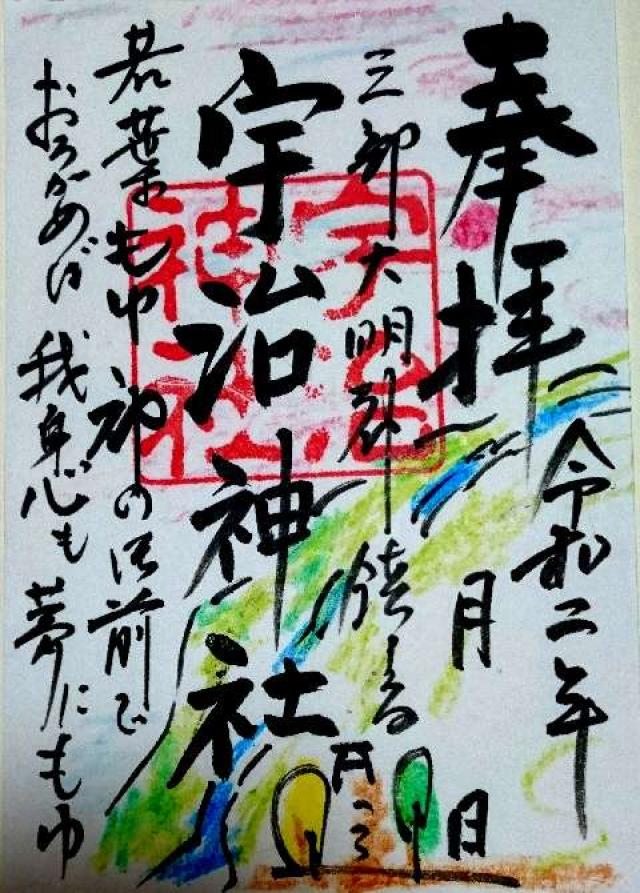 奉拝
令和二年
月 日
三部大明神
宇治神社
宇治神社
若葉もゆ 神の御前で
おろがめば 我身心も 夢にもゆ